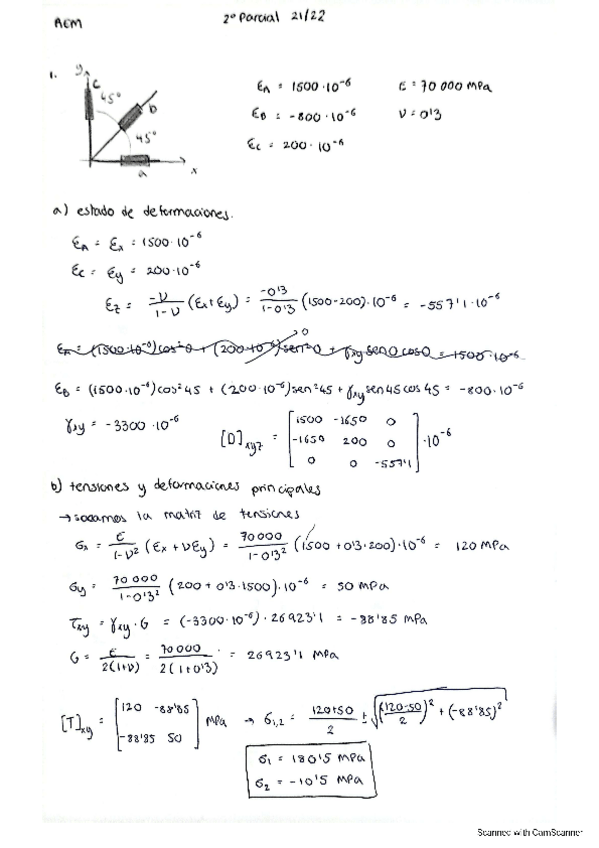 AEM
2º Parcial 21/22
1.
y
c
45º
b
45º
a
x
εA = 1500·10⁻⁶ E = 70 000 MPa
εB = -800·10⁻⁶ ν = 0'3
εC = 200·10⁻⁶
a) estado de deformaciones.
εA = εx = 1500·10⁻⁶
εC = εy = 200·10⁻⁶
εz = -ν/(1-ν) (εx+εy) = -0'3/(1-0'3) (1500-200)·10⁻⁶ = -557'1·10⁻⁶
εA = (1500·10⁻⁶)cos²0 + (200·10⁻⁶)sen²0 + γxy sen0 cos0 = 1500·10⁻⁶
0
εB = (1500·10⁻⁶)cos²45 + (200·10⁻⁶)sen²45 + γxy sen45 cos45 = -800·10⁻⁶
γxy = -3300·10⁻⁶ [D]xyz = [1500 -1650 0
-1650 200 0
0 0 -557'1] ·10⁻⁶
b) tensiones y deformaciones principales
→ sacamos la matriz de tensiones
σx = E/(1-ν²) (εx + νεy) = 70 000/(1-0'3²) (1500 + 0'3·200)·10⁻⁶ = 120 MPa
σy = 70 000/(1-0'3²) (200 + 0'3·1500)·10⁻⁶ = 50 MPa
τxy = γxy·G = (-3300·10⁻⁶)·26923'1 = -88'85 MPa
G = E/2(1+ν) = 70 000/2(1+0'3) = 26923'1 MPa
[T]xy = [120 -88'85
-88'85 50] MPa → σ1,2 = (120+50)/2 ± √((120-50)/2)² + (-88'85)²
σ1 = 180'5 MPa
σ2 = -10'5 MPa
Scanned with CamScanner